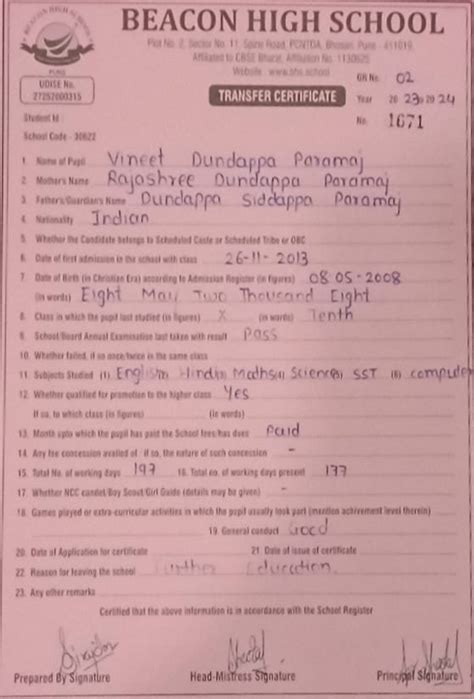 BEACON HIGH SCHOOL
BEACON HIGH SCHOOL
PUNE
Plot No. 2, Sector No. 11, Spine Road, PCNTDA, Bhosari, Pune - 411019.
Affiliated to CBSE Bharat, Affiliation No. 1130625
Website : www.bhs.school
UDISE No.
27252000315
TRANSFER CERTIFICATE
GR No. 02
Year 2023-2024
No. 1671
Student Id
School Code - 30622
1. Name of Pupil Vineet Dundappa Paramaj
2. Mother's Name Rajashree Dundappa Paramaj
3. Father's/Guardian's Name Dundappa Siddappa Paramaj
4. Nationality Indian
5. Whether the Candidate belongs to Scheduled Caste or Scheduled Tribe or OBC
6. Date of first admission in the school with class 26-11-2013
7. Date of Birth (in Christian Era) according to Admission Register (in figures) 08-05-2008
(in words) Eight May Two Thousand Eight
8. Class in which the pupil last studied (in figures) X (in words) Tenth
9. School/Board Annual Examination last taken with result Pass
10. Whether failed, if so once/twice in the same class
11. Subjects Studied (1) English Hindi Maths(4) Science(5) SST (6) computer
12. Whether qualified for promotion to the higher class Yes
If so, to which class (in figures) (in words)
13. Month upto which the pupil has paid the School fees/has dues Paid
14. Any fee concession availed of if so, the nature of such concession -
15. Total No. of working days 197 16. Total no. of working days present 177
17. Whether NCC candet/Boy Scout/Girl Guide (details may be given) -
18. Games played or extra-curricular activities in which the pupil usually took part (mention achivement level therein)
19. General conduct Good
20. Date of Application for certificate 21. Date of issue of certificate
22. Reason for leaving the school Further Education.
23. Any other remarks
Certified that the above information is in accordance with the School Register
Prepared By Signature Head-Mistress Signature Principal Signature